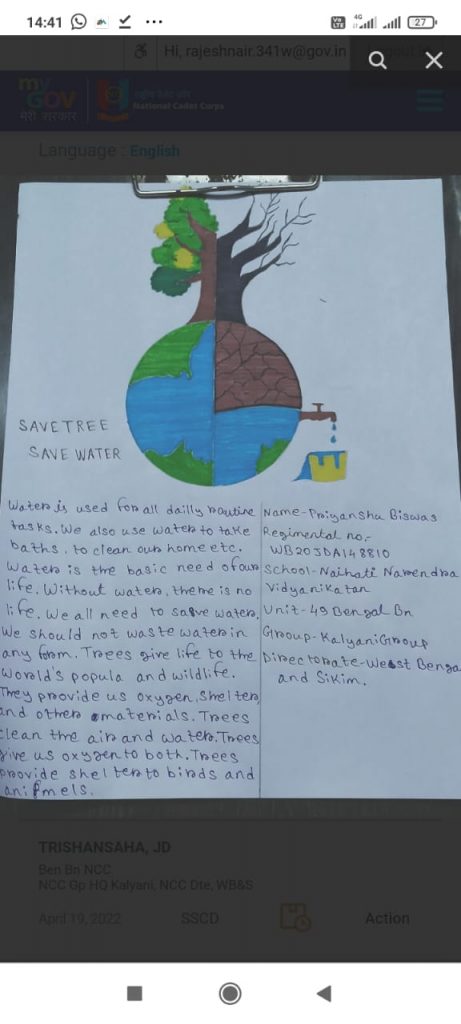 14:41
Vo LTE
4G
27
Hi, rajeshnair.341w@gov.in
Logout
my
GOV
मेरी सरकार
National Cadet Corps
Language : English
SAVE TREE
SAVE WATER
Water is used for all dailly routine
tasks. We also use water to take
baths, to clean our home etc.
Water is the basic need of our
life. Without water, theme is no
life. We all need to save water,
We should not waste water in
any form. Trees give life to the
world's popula and wildlife.
They provide us oxygen, shelter,
and other materials. Trees
clean the air and water. Trees
give us oxygen to both. Trees
provide shelter to birds and
animels.
Name-Priyanshu Biswas
Regimental no.-
WB20JDA148810
School-Naihati Narendra
Vidyanikatan
Unit-49 Bengal Bn
Group-Kalyani Group
Directorate-West Benga
and Sikim.
TRISHANSAHA, JD
Ben Bn NCC
NCC Gp HQ Kalyani, NCC Dte, WB&S
April 19, 2022
SSCD
Action